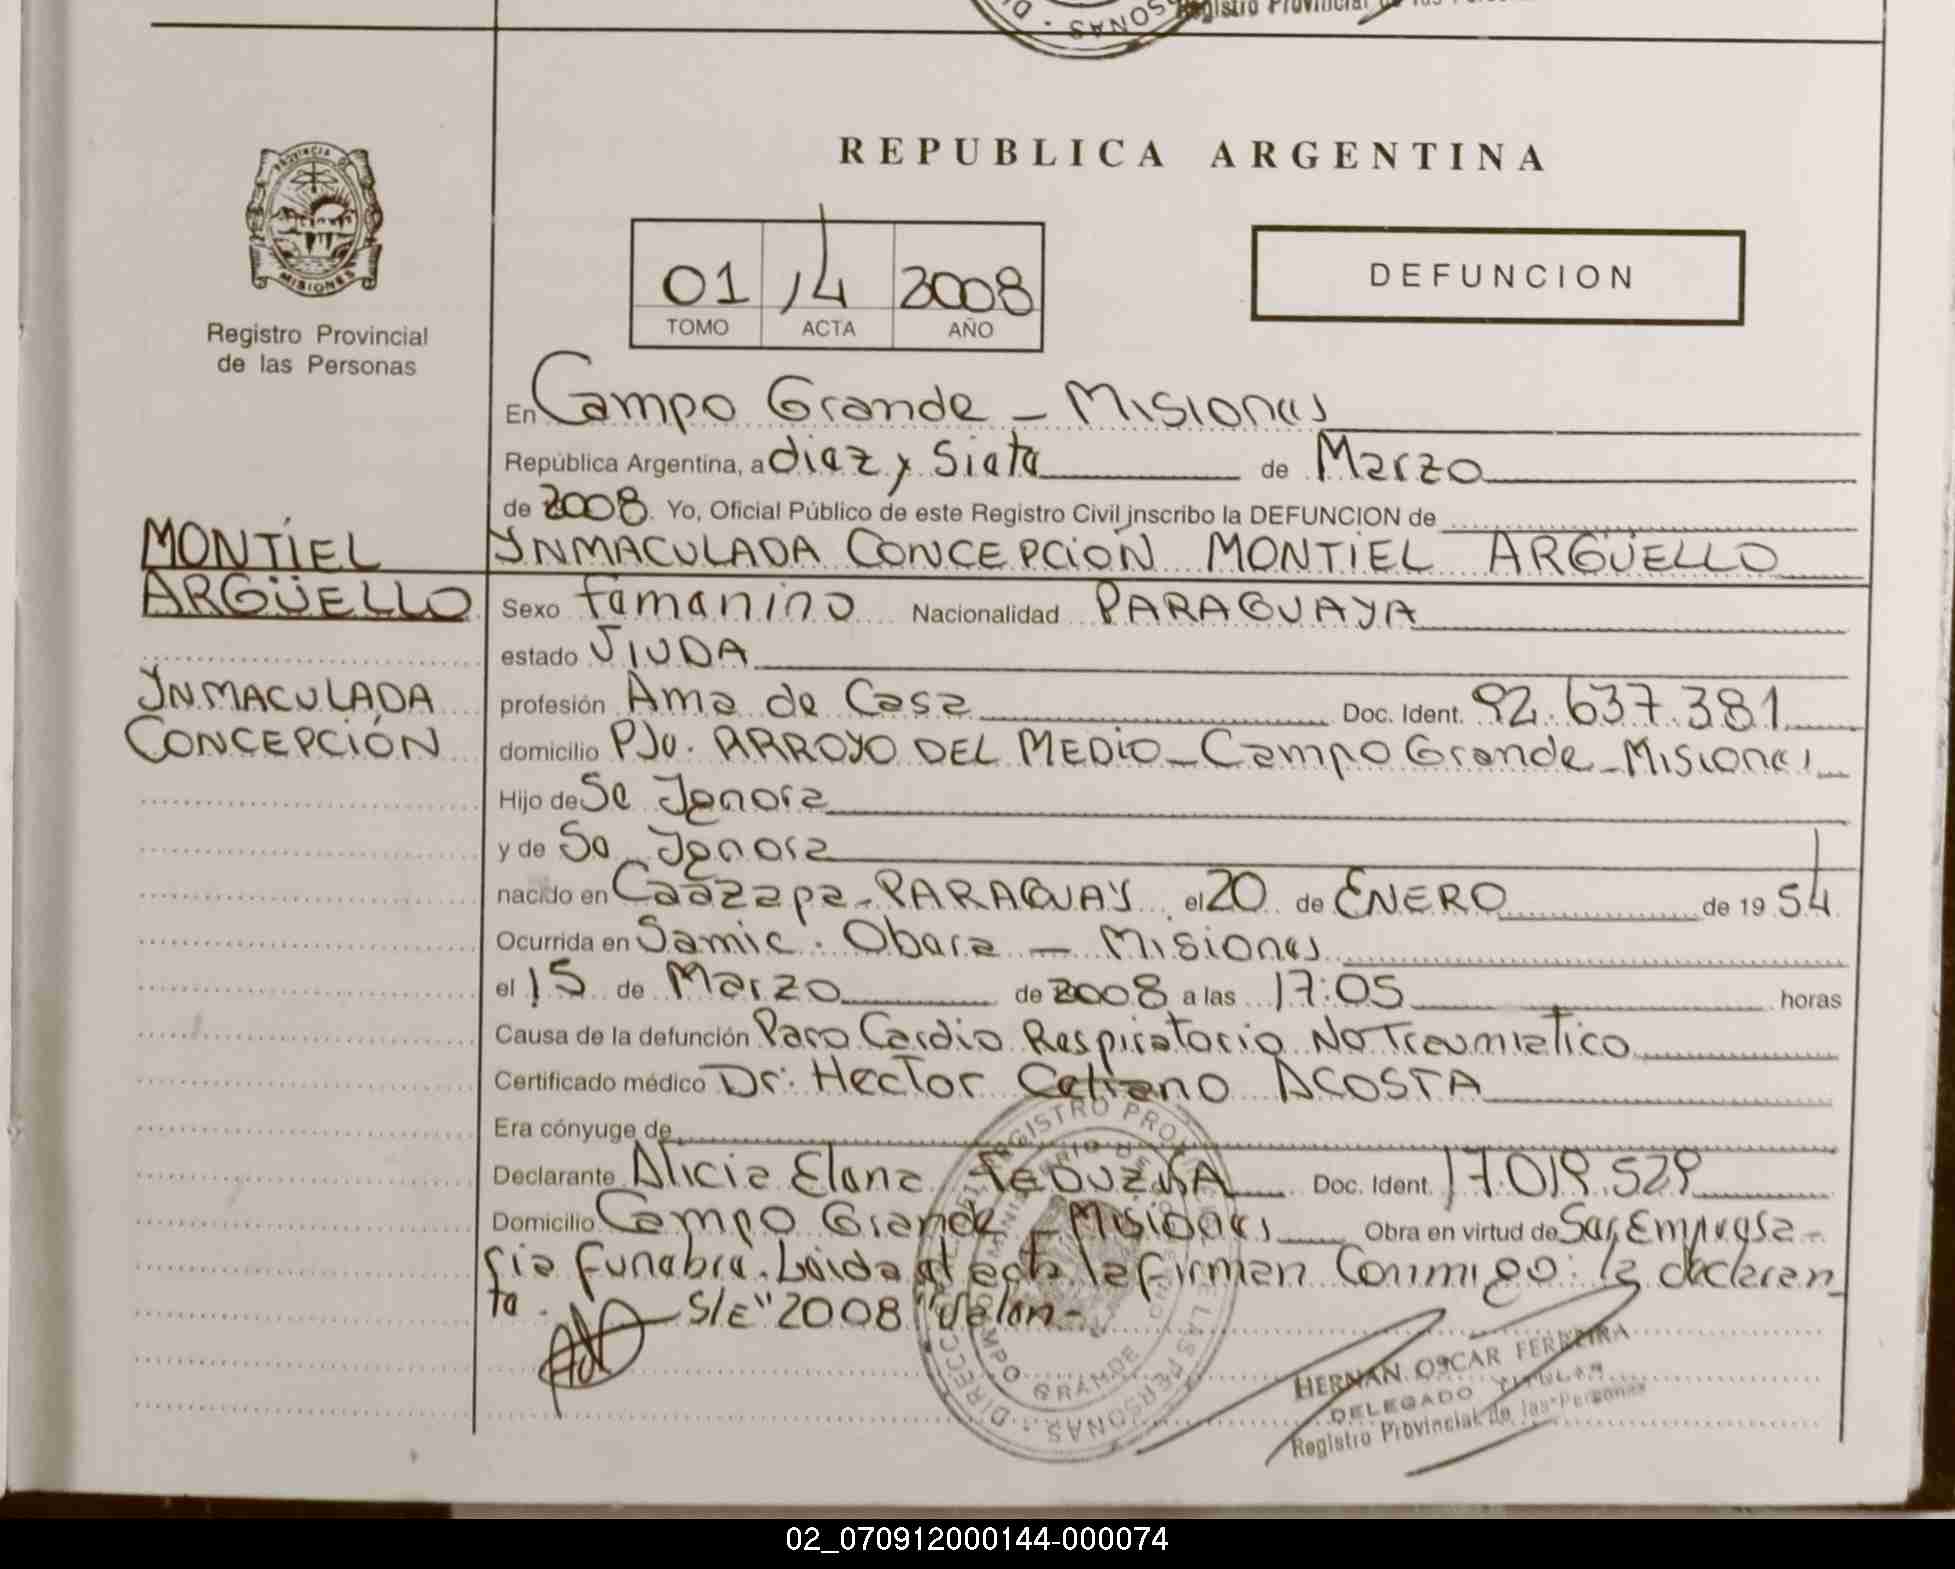 Registro Provincial de las Personas
PROVINCIA
MISIONES
Registro Provincial
de las Personas
REPUBLICA ARGENTINA
01 14 2008
TOMO ACTA AÑO
DEFUNCION
En Campo Grande - Misiones
República Argentina, a diez y siete de Marzo
de 2008. Yo, Oficial Público de este Registro Civil inscribo la DEFUNCION de
YNMACULADA CONCEPCIÓN MONTIEL ARGÜELLO
MONTIEL
ARGÜELLO
YNMACULADA
CONCEPCIÓN
Sexo femenino Nacionalidad PARAGUAYA
estado VIUDA
profesión Ama de Casa Doc. Ident. 92.637.381
domicilio PJe. ARROYO DEL MEDIO - Campo Grande - Misiones
Hijo de Se Ignora
y de Se Ignora
nacido en Caazapa - PARAGUAY el 20 de ENERO de 1954
Ocurrida en Samic. Obera - Misiones
el 15 de Marzo de 2008 a las 17:05 horas
Causa de la defunción Paro Cardio Respiratorio No Traumatico
Certificado médico Dr. Hector ACOSTA
Era cónyuge de
Declarante Alicia Elena Doc. Ident. 17.019.529
Domicilio Campo Grande - Misiones Obra en virtud de Ser Empresa-
ria funebre. Leida el acta la firman Conmigo: la declaran
te. S/E "2008" Valen-
CAMPO GRANDE
HERNAN OSCAR FERREIRA
DELEGADO TITULAR
Registro Provincial de las Personas
02_070912000144-000074